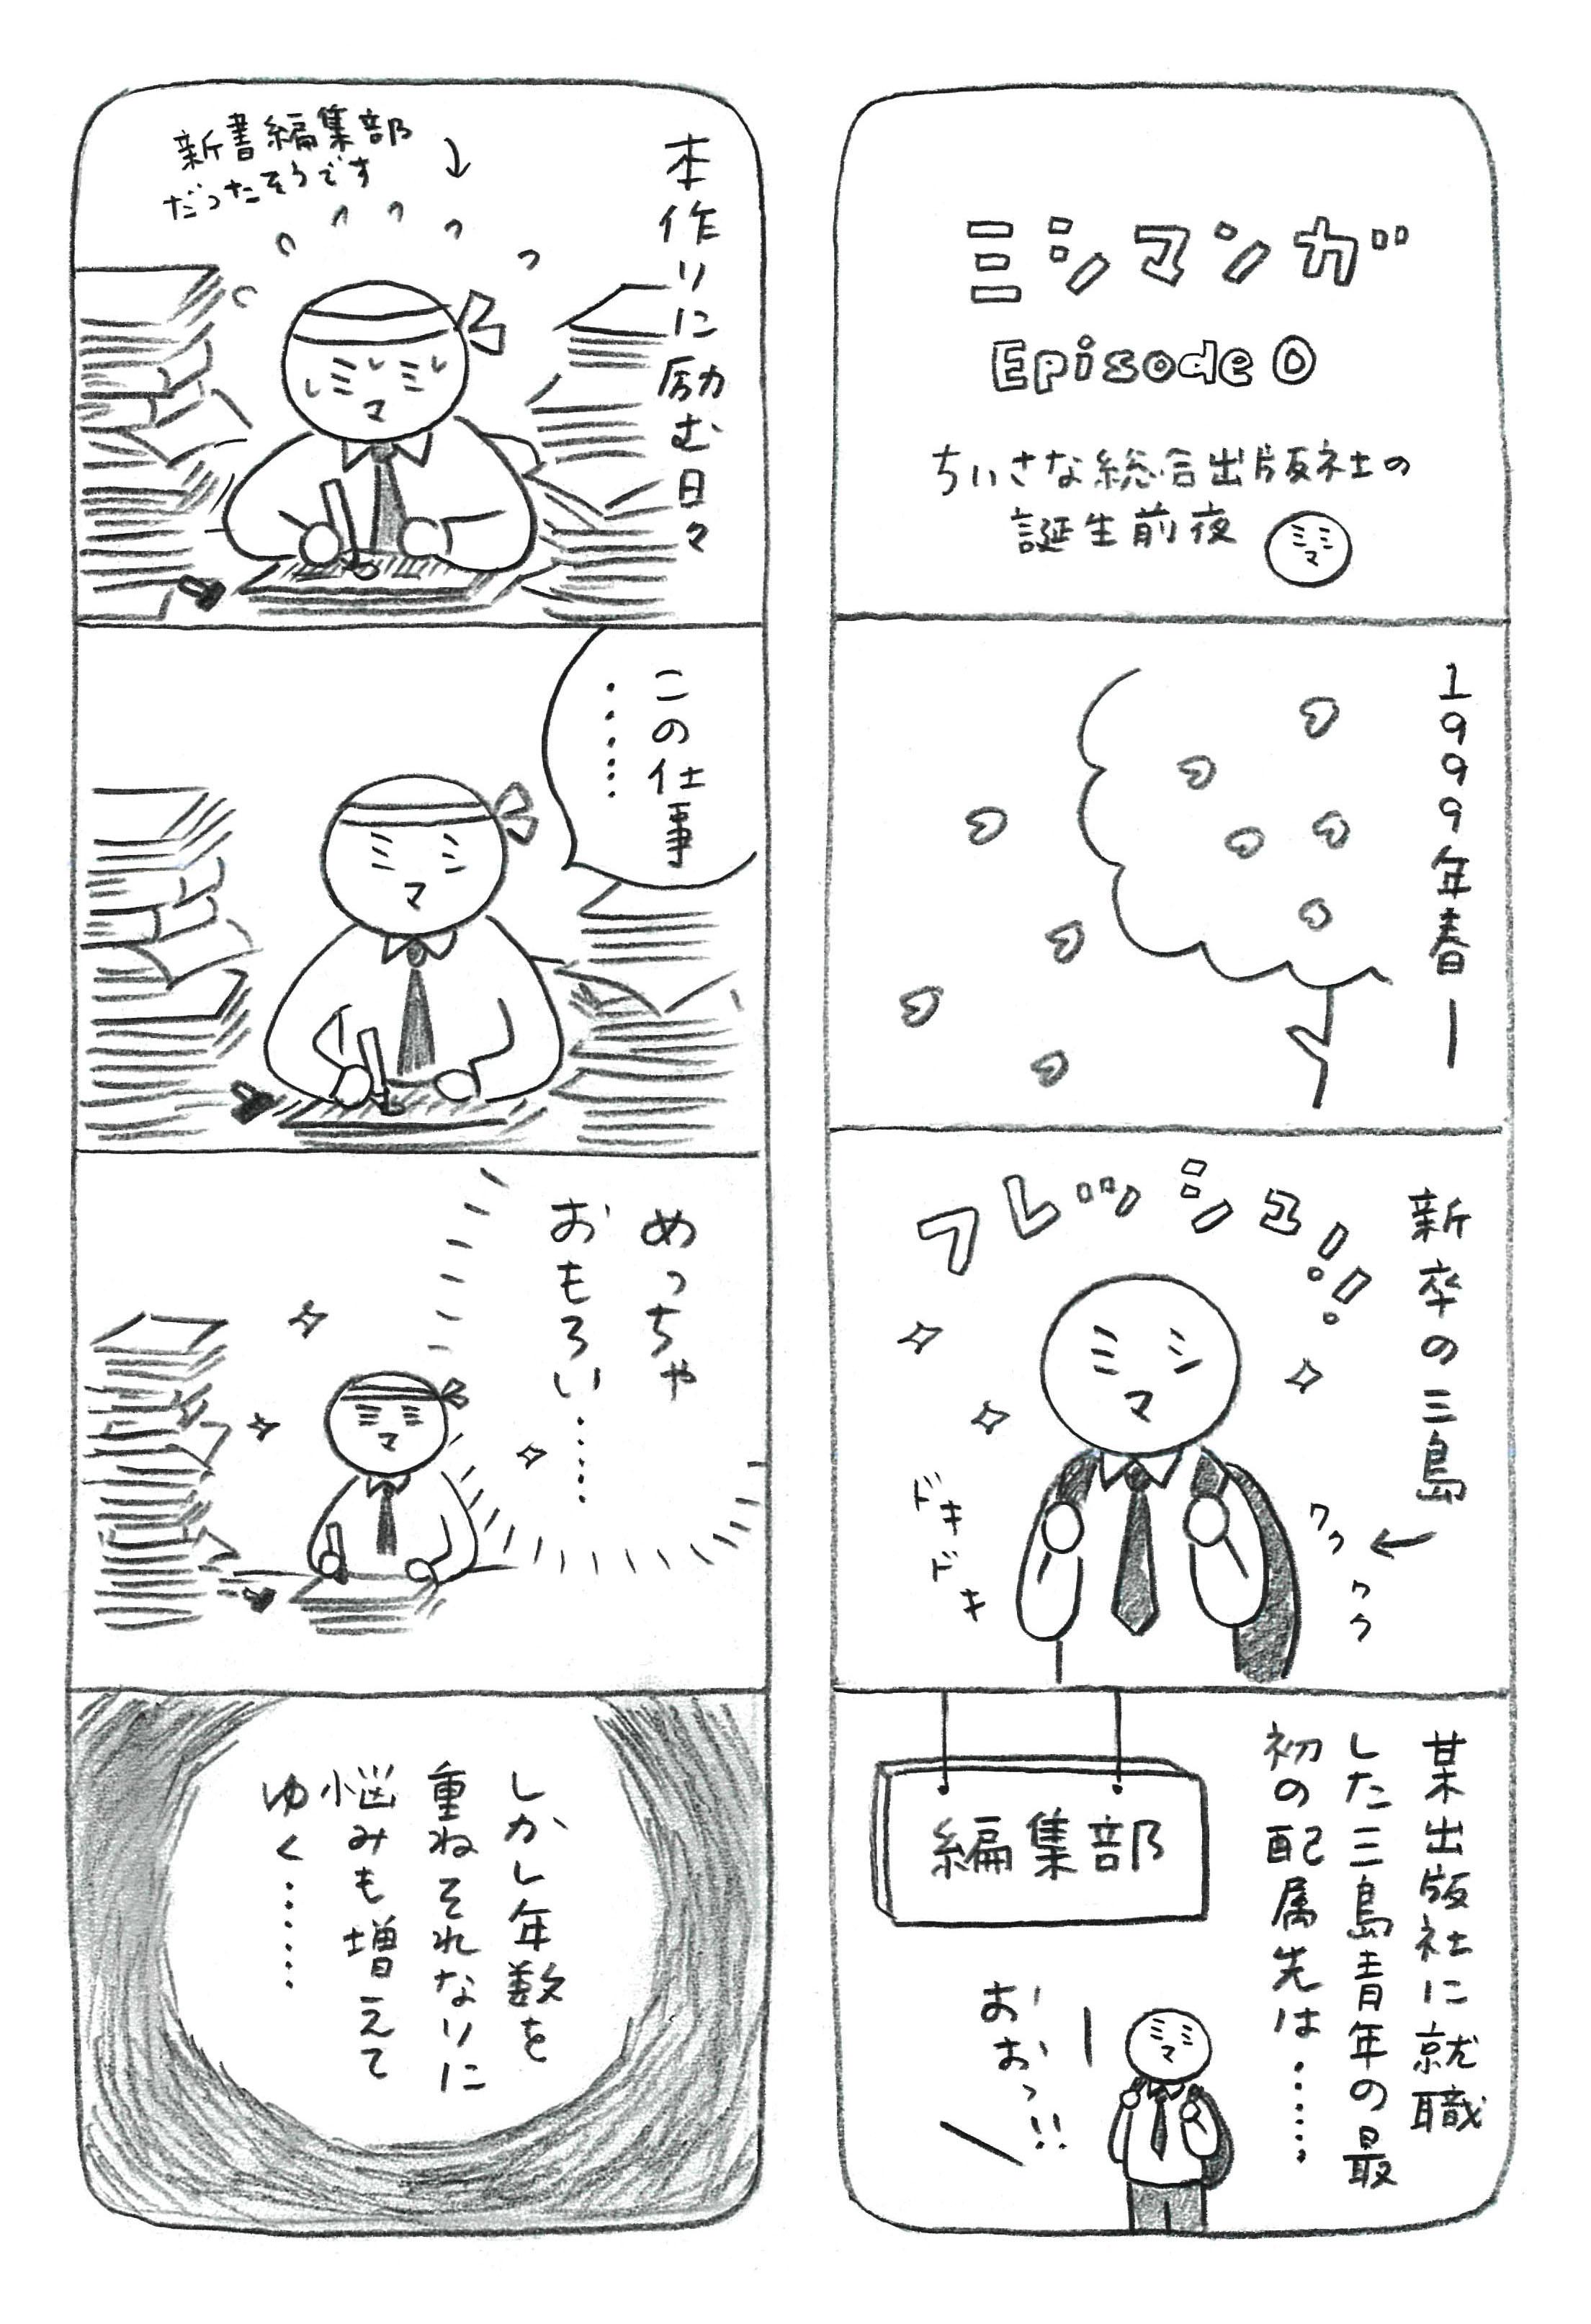 ミシマンガ
Episode 0
ちいさな総合出版社の
誕生前夜
ミシマ
1999年春ー
新卒の三島
フレッシュ!!
ミシマ
ドキドキ
ワクワク
某出版社に就職
した三島青年の最
初の配属先は……
編集部
おおっ!!
ミシマ
本作りに励む日々
新書編集部
だったそうです
ミシマ
この仕事
……
ミシマ
めっちゃ
おもろい……
ミシマ
しかし年数を
重ねそれなりに
悩みも増えて
ゆく……